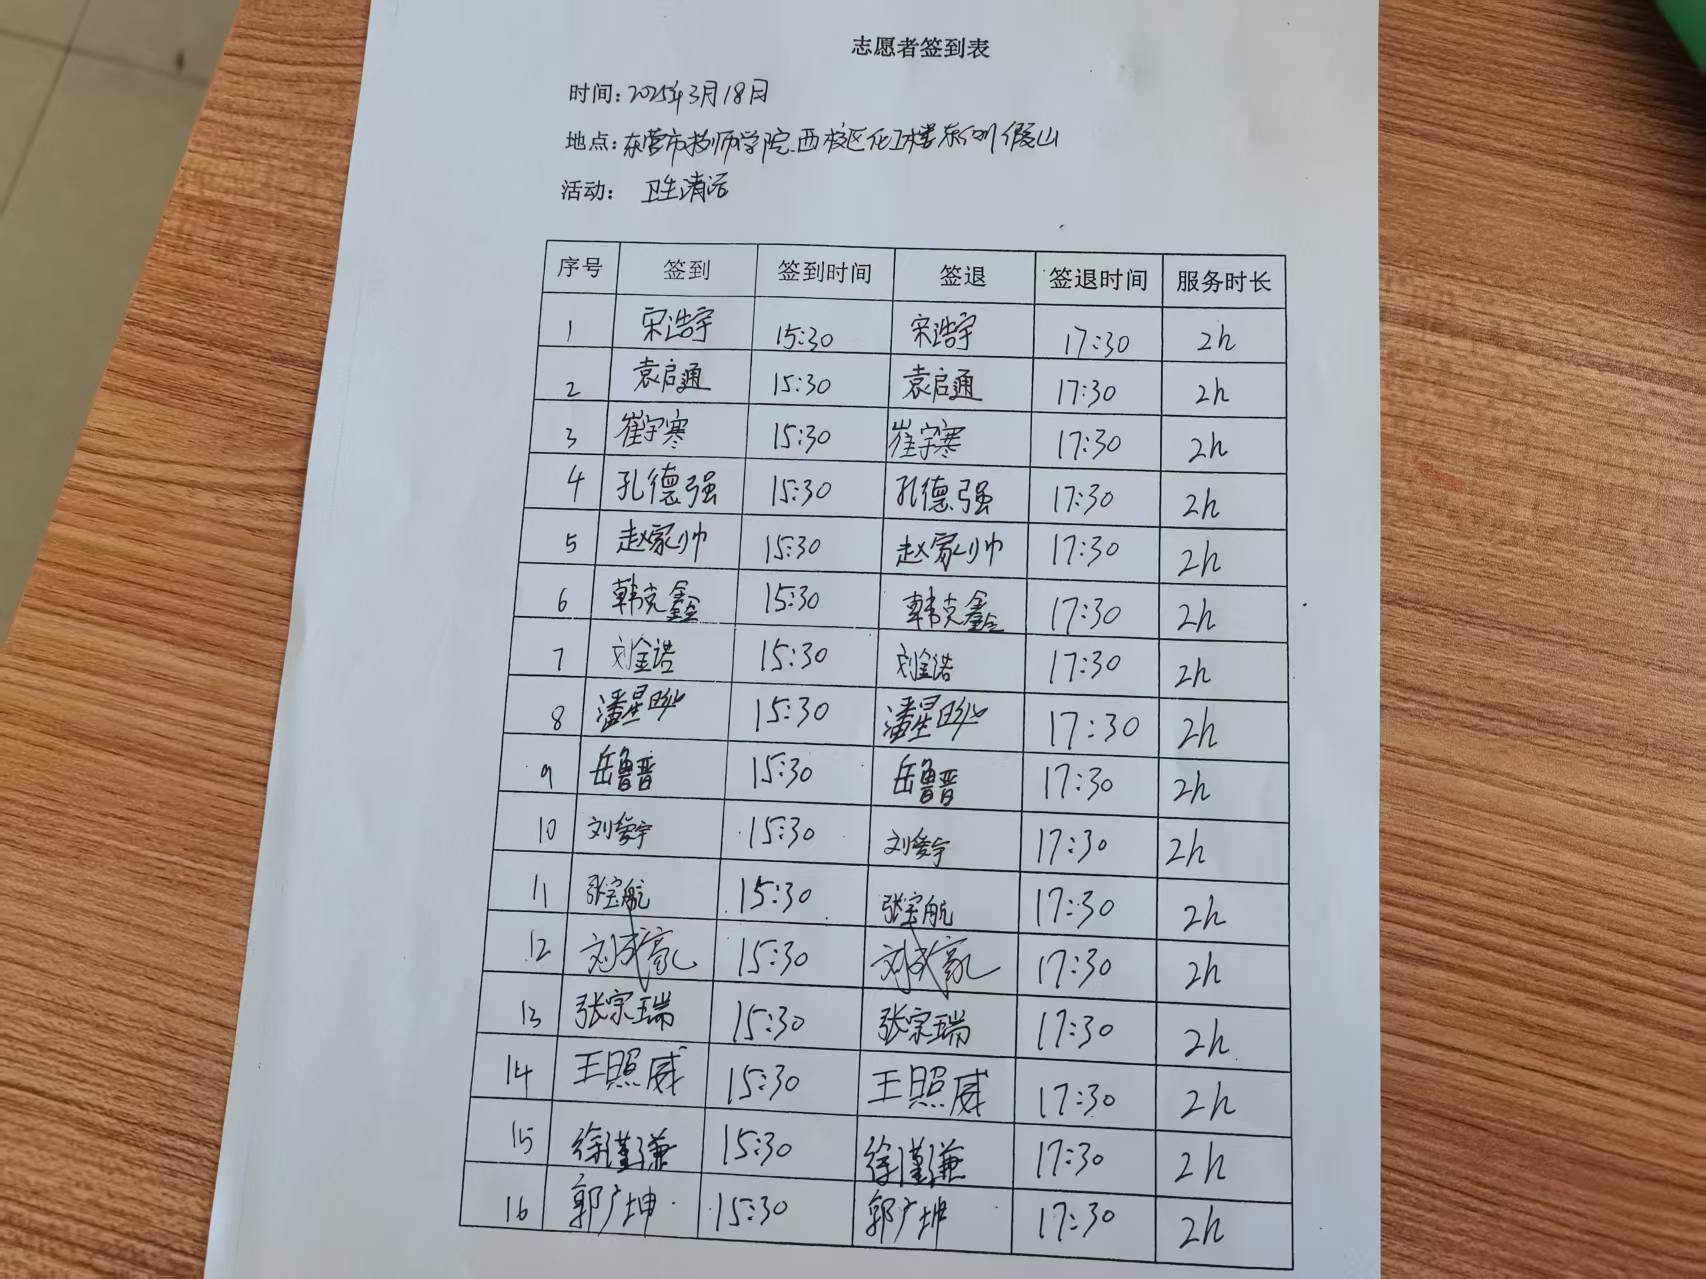 志愿者签到表
时间：2025年3月18日
地点：东营市技师学院西校区化工楼东侧假山
活动： 卫生清洁
序号 签到 签到时间 签退 签退时间 服务时长
1 宋浩宇 15:30 宋浩宇 17:30 2h
2 袁启通 15:30 袁启通 17:30 2h
3 崔宇寒 15:30 崔宇寒 17:30 2h
4 孔德强 15:30 孔德强 17:30 2h
5 赵家帅 15:30 赵家帅 17:30 2h
6 韩克鑫 15:30 韩克鑫 17:30 2h
7 刘金诺 15:30 刘金诺 17:30 2h
8 潘星 15:30 潘星 17:30 2h
9 岳鲁晋 15:30 岳鲁晋 17:30 2h
10 刘宇 15:30 刘宇 17:30 2h
11 张宝航 15:30 张宝航 17:30 2h
12 刘成豪 15:30 刘成豪 17:30 2h
13 张宗瑞 15:30 张宗瑞 17:30 2h
14 王照威 15:30 王照威 17:30 2h
15 徐谨谦 15:30 徐谨谦 17:30 2h
16 郭广坤 15:30 郭广坤 17:30 2h